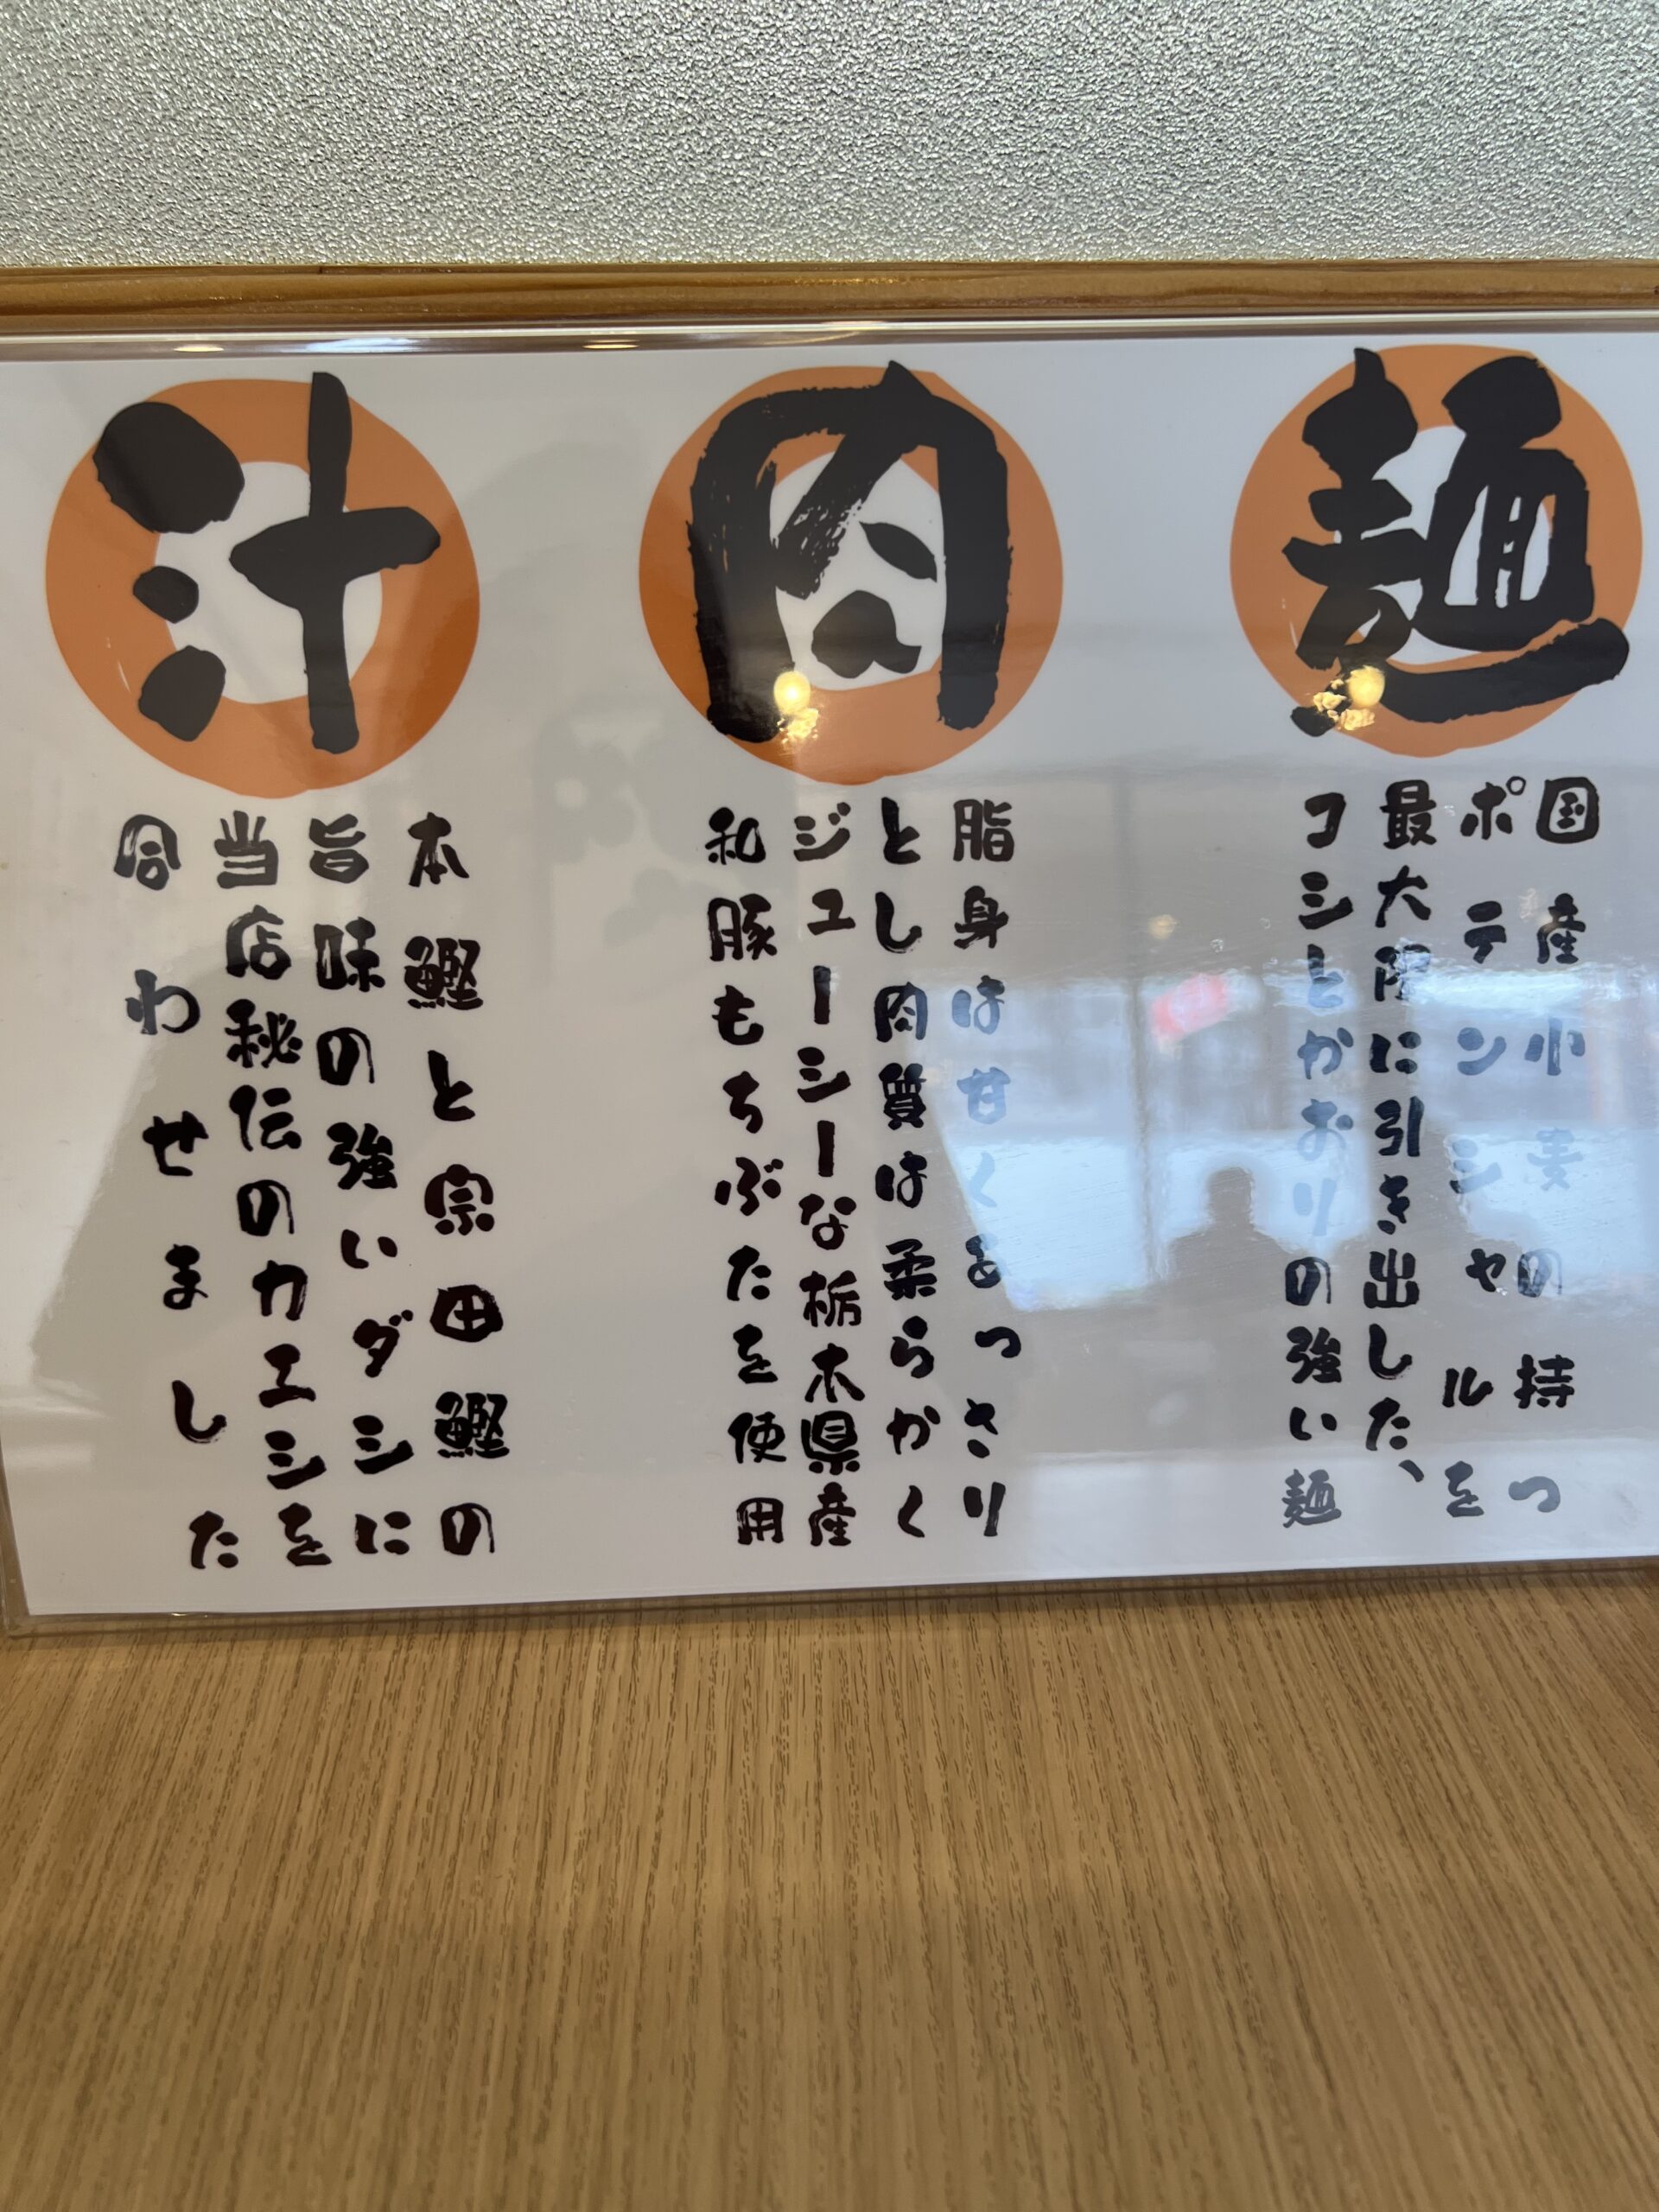 麺
国産小麦の持つ
ポテンシャルを
最大限に引き出した、
コシとかおりの強い麺
肉
脂身は甘くあっさり
とし肉質は柔らかく
ジューシーな栃木県産
和豚もちぶたを使用
汁
本鰹と宗田鰹の
旨味の強いダシに
当店秘伝のカエシを
合わせました